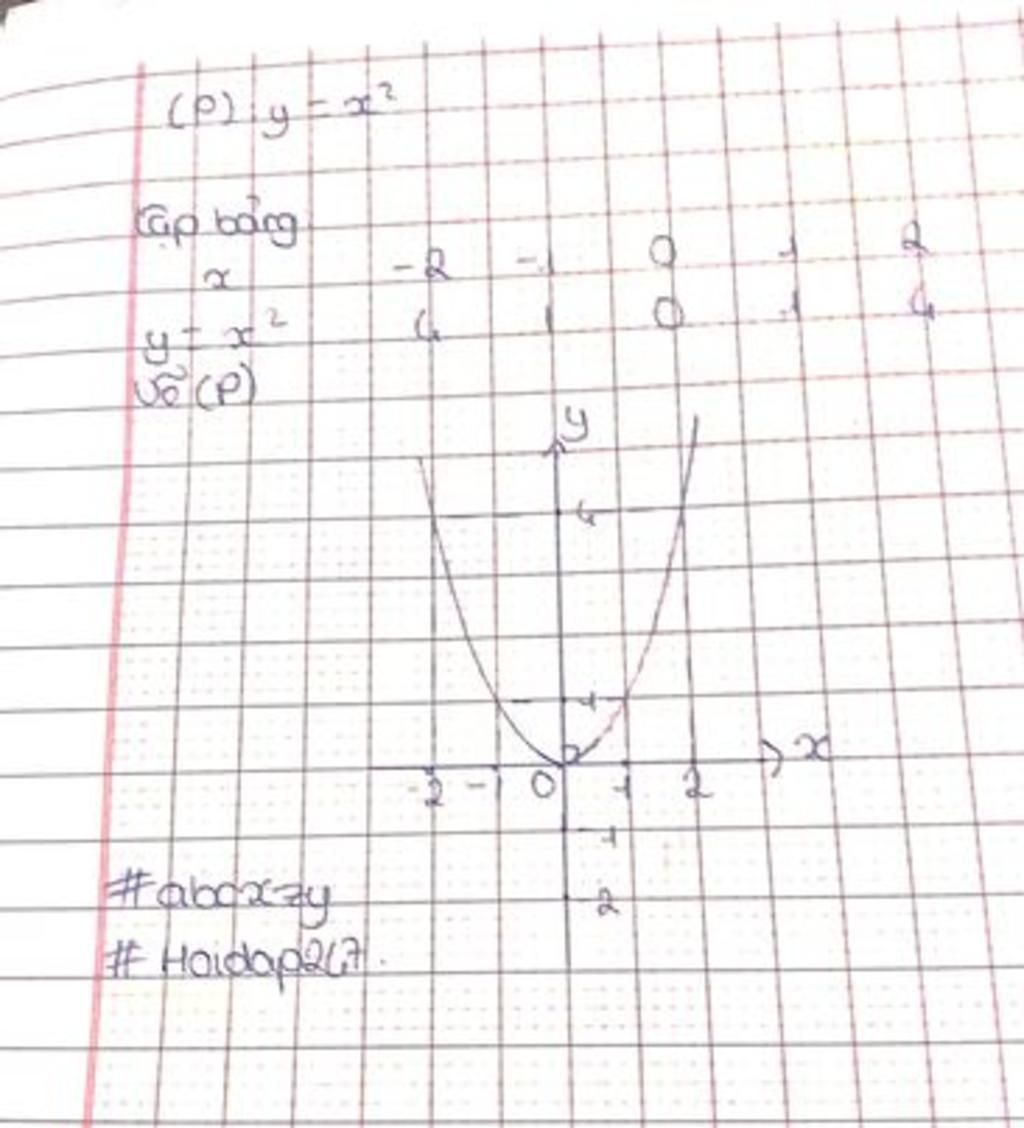 (P) y = x²
Lập bảng
x -2 -1 0 1 2
y = x² 4 1 0 1 4
Vẽ (P)
y
4
1
x
-2 -1 0 1 2
-1
-2
#abcxzy
# Hoidap247.